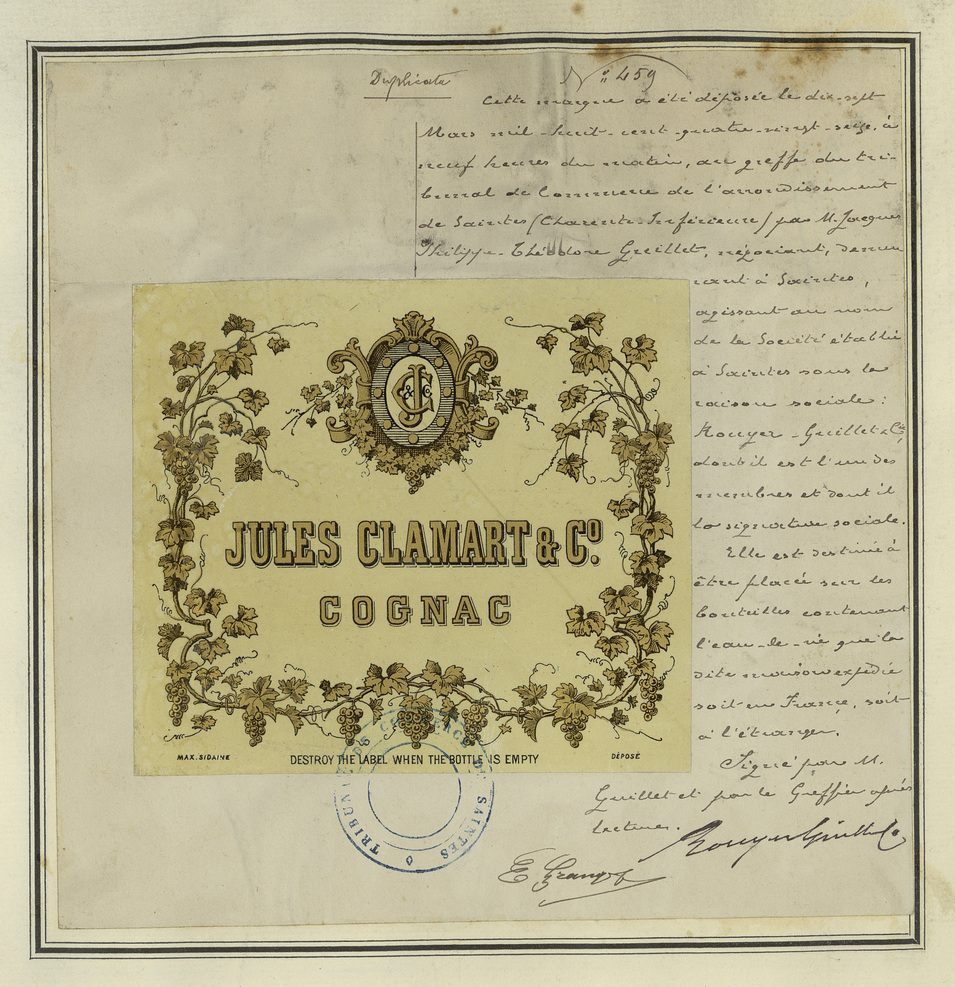 Duplicata
N° 459
Cette marque a été déposée le dix-sept
Mars mil-huit-cent-quatre-vingt-seize, à
neuf heures du matin, au greffe du tri-
bunal de Commerce de l'arrondissement
de Saintes (Charente-Inférieure) par M. Jacques
Philippe-Théodore Guillet, négociant, demeu
rant à Saintes,
agissant au nom
de la Société établie
à Saintes sous la
raison sociale:
Rouyer-Guillet & Cie,
dont il est l'un des
membres et dont il
la signature sociale.
Elle est destinée à
être placée sur les
bouteilles contenant
l'eau-de-vie que la
dite maison expédie
soit en France, soit
à l'étranger.
Signé par M.
Guillet et par le Greffier après
lecture.
Rouyer Guillet & Co
J & C Co
JULES CLAMART & Co.
COGNAC
MAX. SIDAINE
DESTROY THE LABEL WHEN THE BOTTLE IS EMPTY
DÉPOSÉ
TRIBUNAL DE COMMERCE DE SAINTES